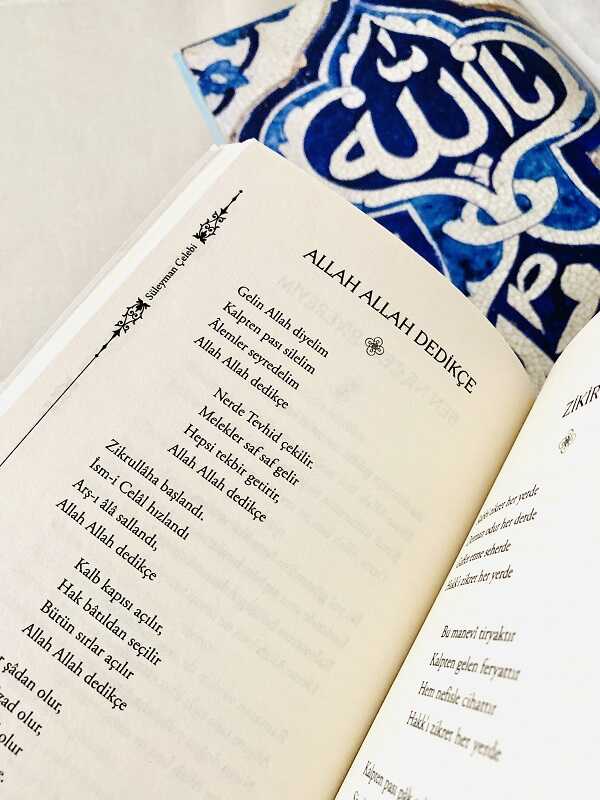 يا الله
Süleyman Çelebi
ALLAH ALLAH DEDİKÇE
Gelin Allah diyelim
Kalpten pası silelim
Âlemler seyredelim
Allah Allah dedikçe
Nerde Tevhid çekilir.
Melekler saf saf gelir
Hepsi tekbir getirir,
Allah Allah dedikçe
Zikrullâha başlandı.
İsm-i Celâl hızlandı
Arş-ı âlâ sallandı,
Allah Allah dedikçe
Kalb kapısı açılır,
Hak bâtıldan seçilir
Bütün sırlar açılır
Allah Allah dedikçe
şâdan olur,
olur,
olur
ZİKİR
zikret her yerde
odur her derde
etme seherde
Hakk'ı zikret her yerde
Bu manevî tiryaktır
Kalpten gelen feryattır
Hem nefisle cihattır
Hakk'ı zikret her yerde
Kalpten pası